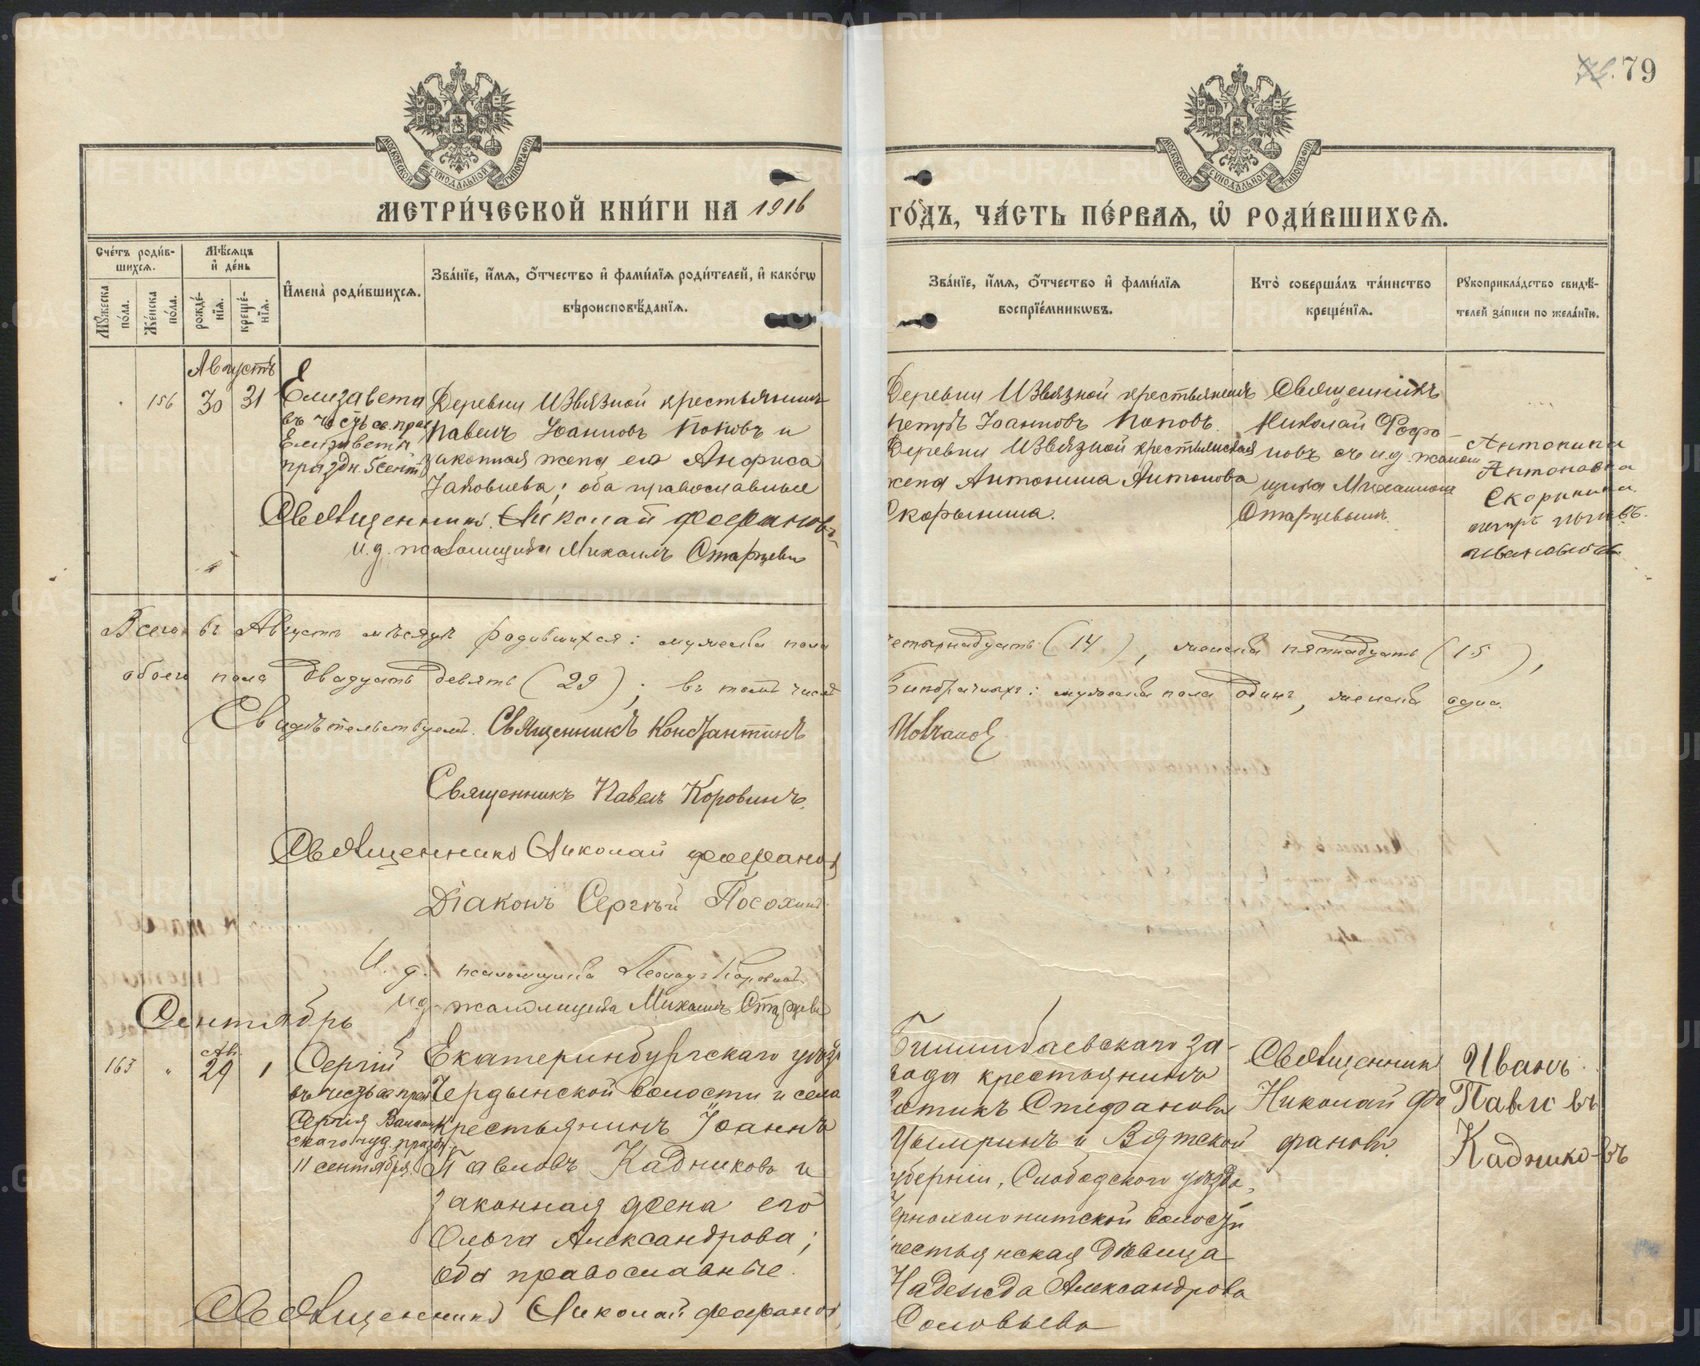 79
МЕТРИ́ЧЕСКОЙ КНИ́ГИ НА 1916
ГО́ДЪ, ЧА́СТЬ ПЕ́РВАЯ, Ѿ РОДИ́ВШИХСЯ.
Сче́тъ роди́в-
шихся.
Мѣ́сяцъ
и҆ де́нь
Му́жеска по́ла.
Же́нска по́ла.
рожде́-
нїя.
креще́-
нїя.
И҆мена̀ роди́вшихся.
Зва́нїе, и҆́мя, ѻ҆́тчество и҆ фами́лїя роди́телей, и҆ како́гѡ
вѣроисповѣ́данїя.
Зва́нїе, и҆́мя, ѻ҆́тчество и҆ фами́лїя
воспрїе́мникѡвъ.
Кто̀ соверша́лъ та́инство
креще́нїя.
Рꙋкоприкла́дство свидѣ́-
телей за́писи по жела́нїю.
Августъ
156 30 31
Елизавета
въ честь св. прав.
Елизаветы
праздн. 5 сент.
Деревни Извязной крестьянинъ
Павелъ Іоанновъ Поповъ и
законная жена его Анфиса
Іаковлева; оба православные
Священникъ Николай Феофановъ
И. д. псаломщика Михаилъ Старцевъ
Деревни Извязной крестьянинъ
Петръ Іоанновъ Поповъ.
Деревни Извязной крестьянская
жена Антонина Антонова
Скорынина.
Священникъ
Николай Феофа-
новъ съ и. д. псалом
щика Михаиломъ
Старцевымъ
Антонина
Антоновна
Скорынина
петръ поповъ.
Всего въ Августѣ мѣсяцѣ родившихся: мужска пола
четырнадцать (14), женска пятнадцать (15),
обоего пола двадцать девять (29); въ томъ числѣ
Внѣбрачныхъ: мужска пола одинъ, женска одна.
Свидѣтельствуемъ. Священникъ Константинъ
Священникъ Павелъ Коровинъ.
Священникъ Николай Феофановъ
Діаконъ Сергѣй Посохинъ
И. д. псаломщика Леонидъ
и. д. псаломщика Михаилъ Старцевъ
Сентябрь
163 Авг. 29 1
Сергій
въ честь св. преп.
Сергія Валаам
скаго чуд. праздн.
11 сентября.
Екатеринбургскаго уѣзда
Чердынской волости и села
крестьянинъ Іоаннъ
Павловъ Кадниковъ и
законная жена его
Ольга Александрова;
оба православные.
Священникъ Николай Феофановъ
Билимбаевскаго за-
вода крестьянинъ
Зотикъ Стефановъ
Цыпринъ и Вятской
губерніи, Слободского уѣзда,
волости
крестьянская дѣвица
Надежда Александрова
Соловьева
Священникъ
Николай Фео
фановъ.
Иванъ
Павловъ
Кадниковъ